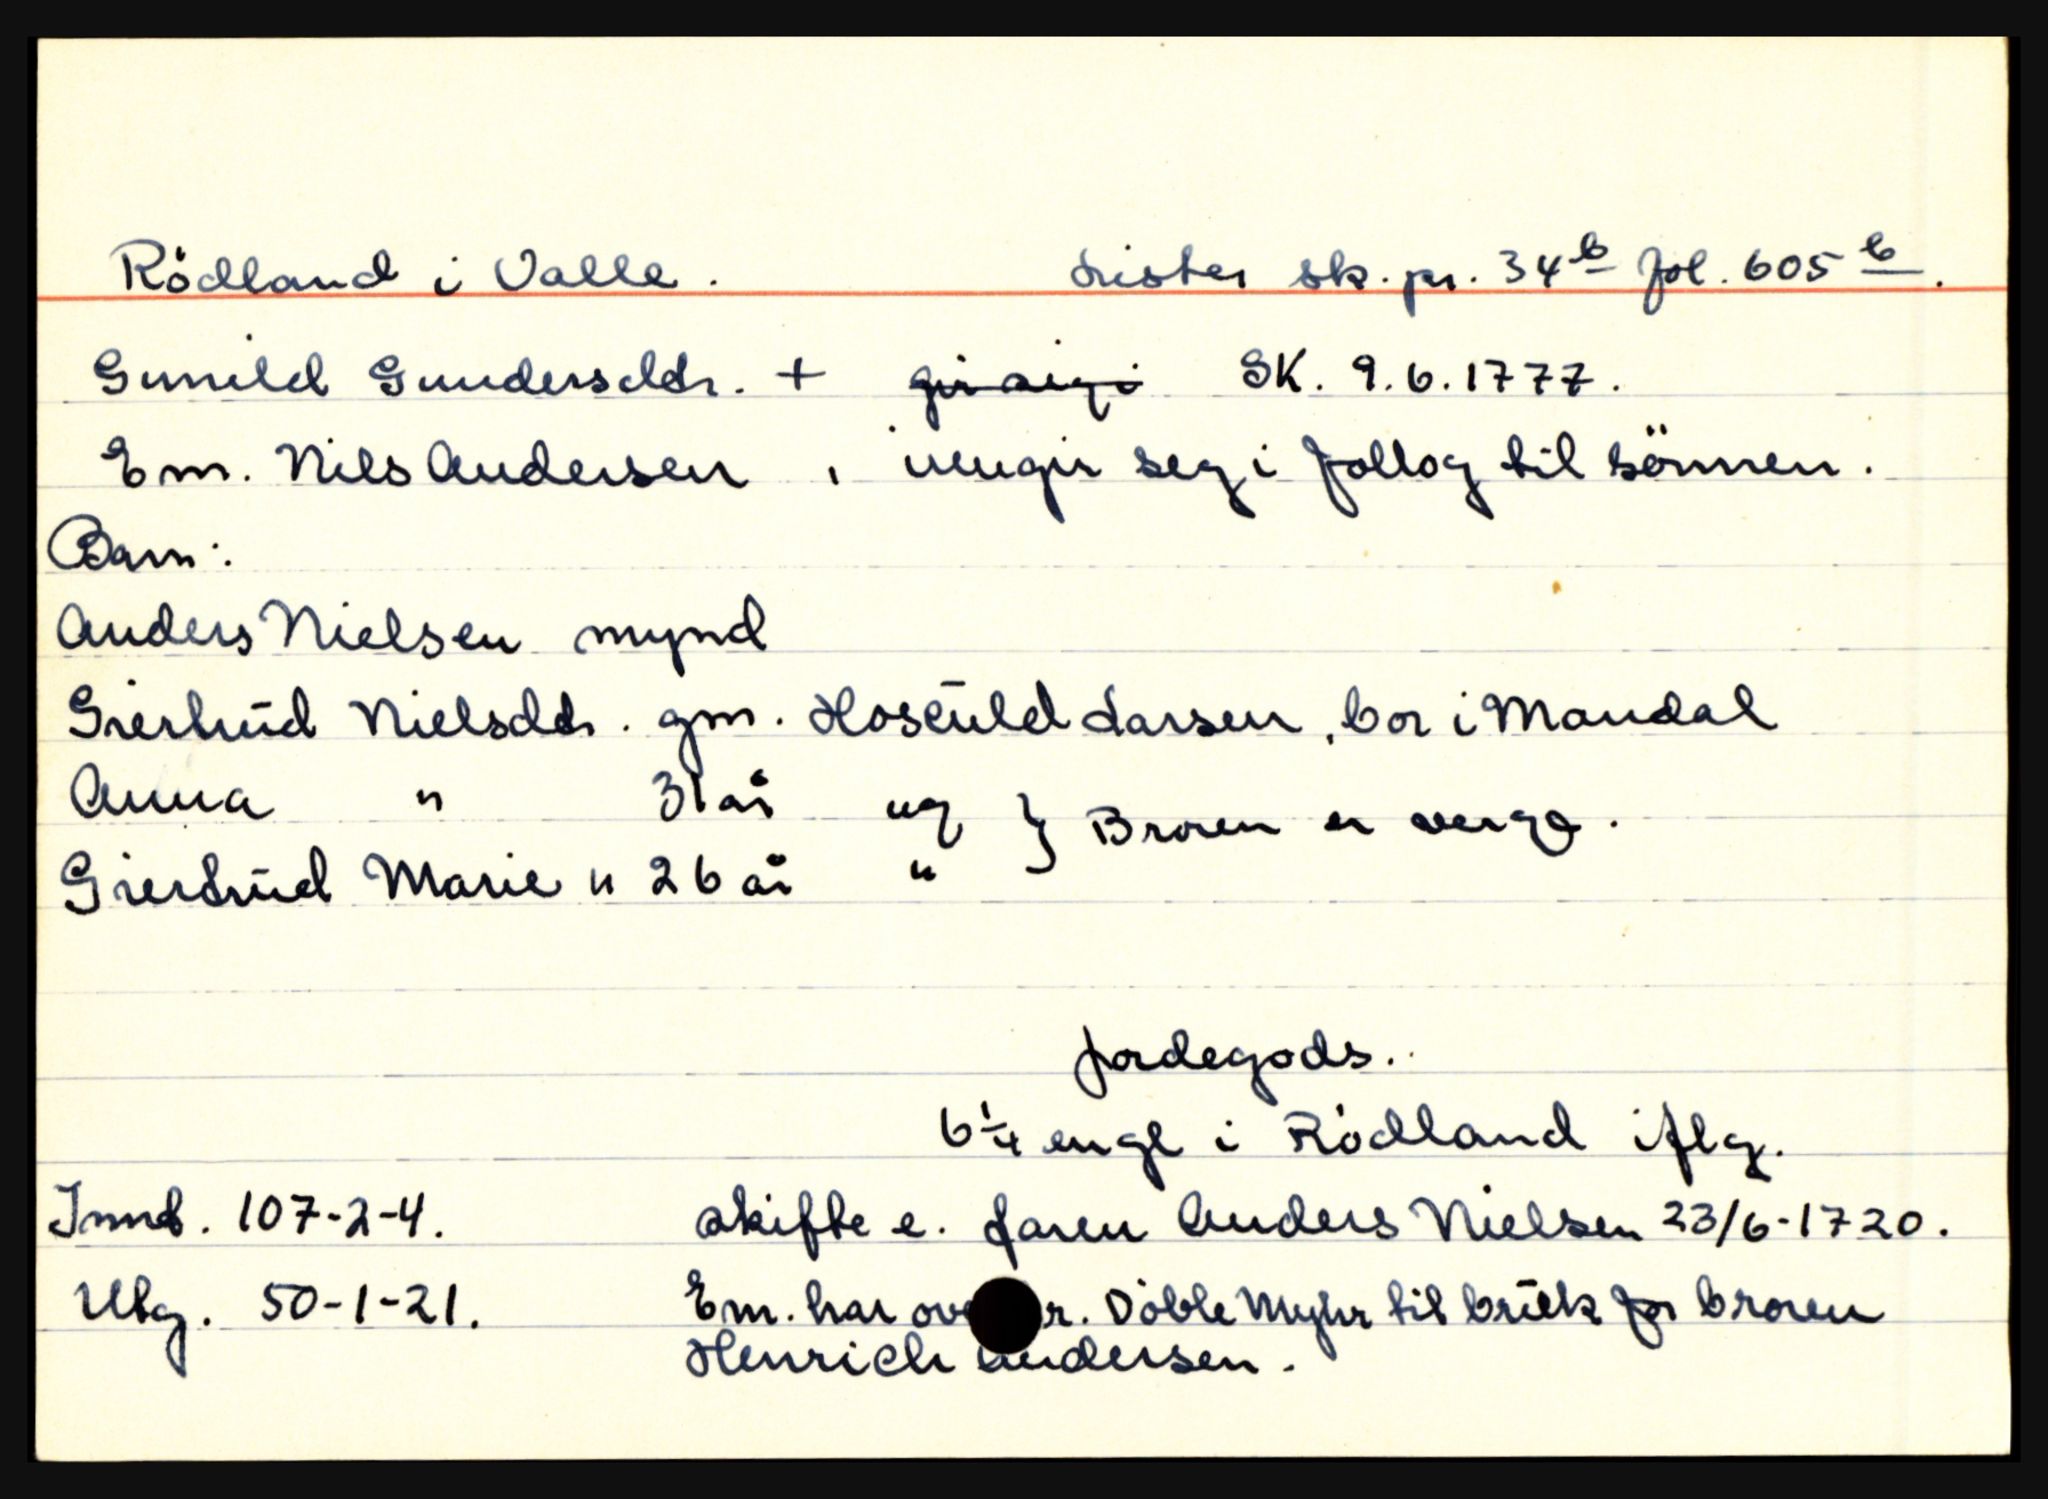 Rödland i Valle. Lister sk. pr. 34 b fol. 605 b.
Gunild Gundersdtr. + SK. 9.6.1777.
Em. Nils Andersen, inngir seg i follog til sönnen.
Barn:
Anders Nielsen mynd
Giertrud Nielsdtr. gm. Hoseuld Larsen, bor i Mandal
Anna " 31 år ug } Broren er verge.
Giertrud Marie " 26 år "
Jordegods.
6 1/4 engl i Rödland iflg.
Innb. 107-2-4. skifte e. faren Anders Nielsen 23/6-1720.
Utg. 50-1-21. Em. har ove r. Doble Myhr til bruk for broren
Henrich Andersen.